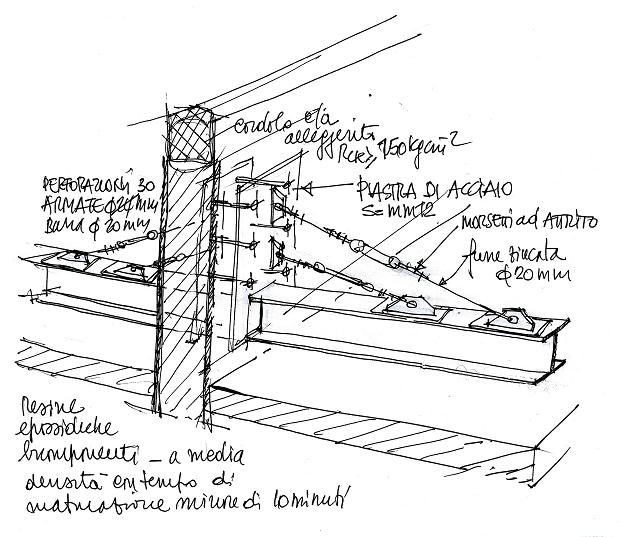 cordolo cls
alleggerito
Rck ≥ 250 kg cm²
PERFORAZIONI 30
ARMATE Ø 26 mm
BARRA Ø 20 mm
PIASTRA DI ACCIAIO
S = mm 12
MORSETTI ad ATTRITO
fune zincata
Ø 20 mm
resine
epossidiche
bicomponenti – a media
densità con tempo di
maturazione minore di 10 minuti